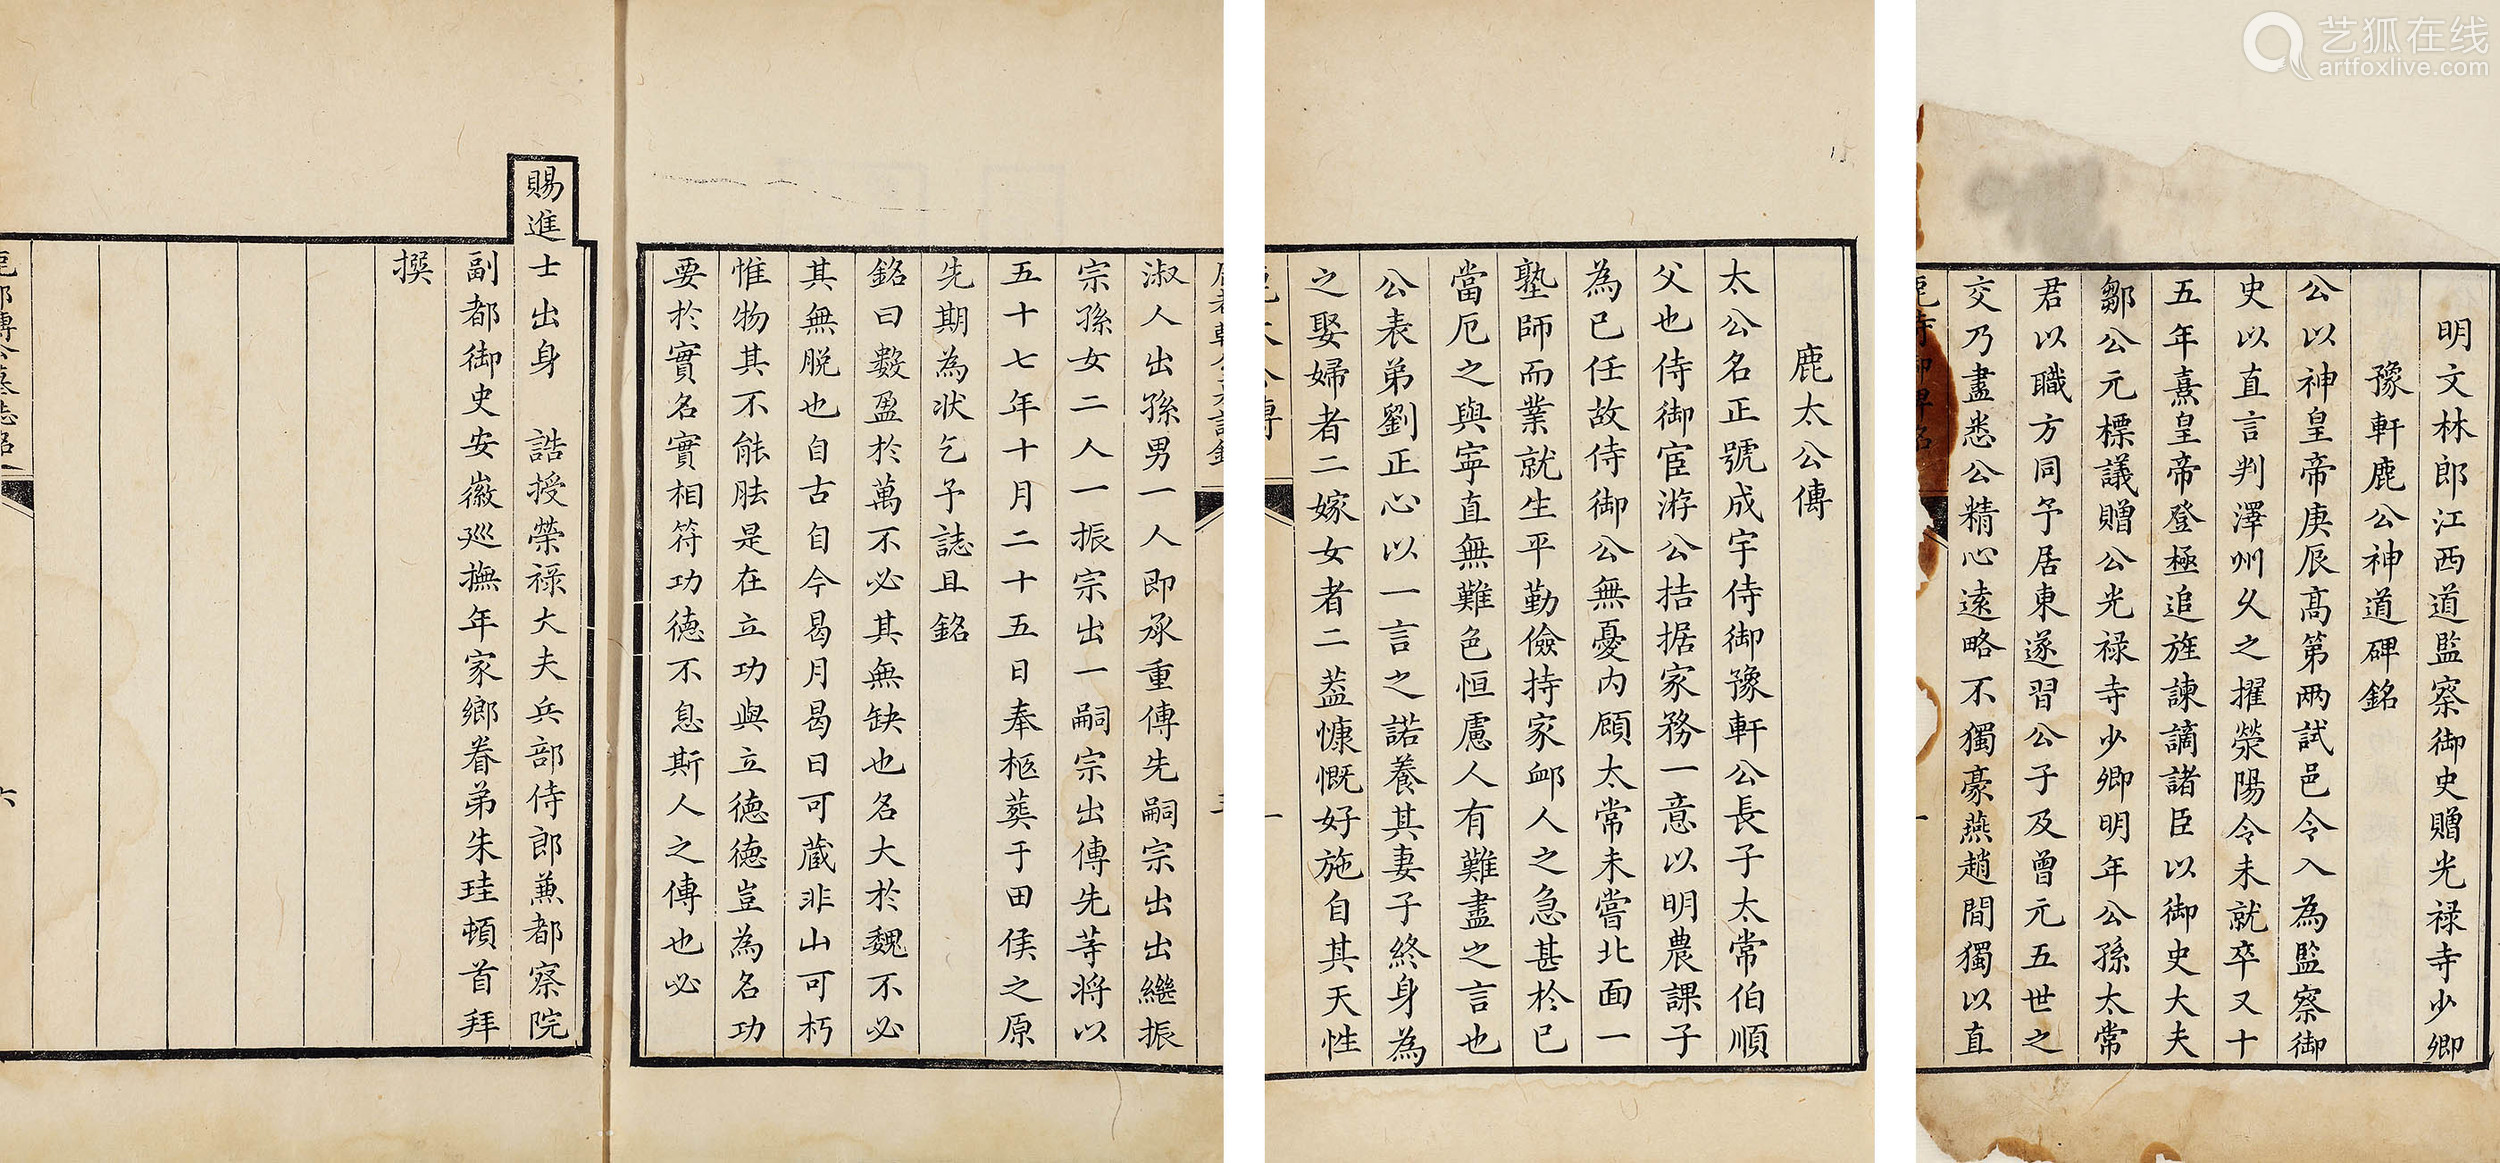 艺狐在线
artfoxlive.com
明文林郎江西道監察御史贈光禄寺少卿
豫軒鹿公神道碑銘
公以神皇帝庚辰髙第兩試邑令入為監察御
史以直言判澤州乆之擢滎陽令未就卒又十
五年熹皇帝登極追旌諫謫諸臣以御史大夫
鄒公元標議贈公光禄寺少卿明年公孫太常
君以職方同予居東遂習公子及曽元五世之
交乃盡悉公精心遠略不獨豪燕趙間獨以直
鹿太公傳
太公名正號成宇侍御豫軒公長子太常伯順
父也侍御宦游公拮据家務一意以明農課子
為已任故侍御公無憂内顧太常未嘗北面一
塾師而業就生平勤儉持家䘏人之急甚於已
當厄之與寧直無難色恒慮人有難盡之言也
公表弟劉正心以一言之諾養其妻子終身為
之娶婦者二嫁女者二葢慷慨好施自其天性
鹿太公傳
一
淑人出孫男一人即承重傳先嗣宗出出繼振
宗孫女二人一振宗出一嗣宗出傳先等將以
五十七年十月二十五日奉柩葬于田侯之原
先期為狀乞予誌且銘
銘曰數盈於萬不必其無缺也名大於魏不必
其無脱也自古自今曷月曷日可藏非山可朽
惟物其不能胠是在立功與立德德豈為名功
要於實名實相符功德不息斯人之傳也必
賜進士出身　誥授榮禄大夫兵部侍郎兼都察院
副都御史安徽廵撫年家鄉眷弟朱珪頓首拜
撰
六